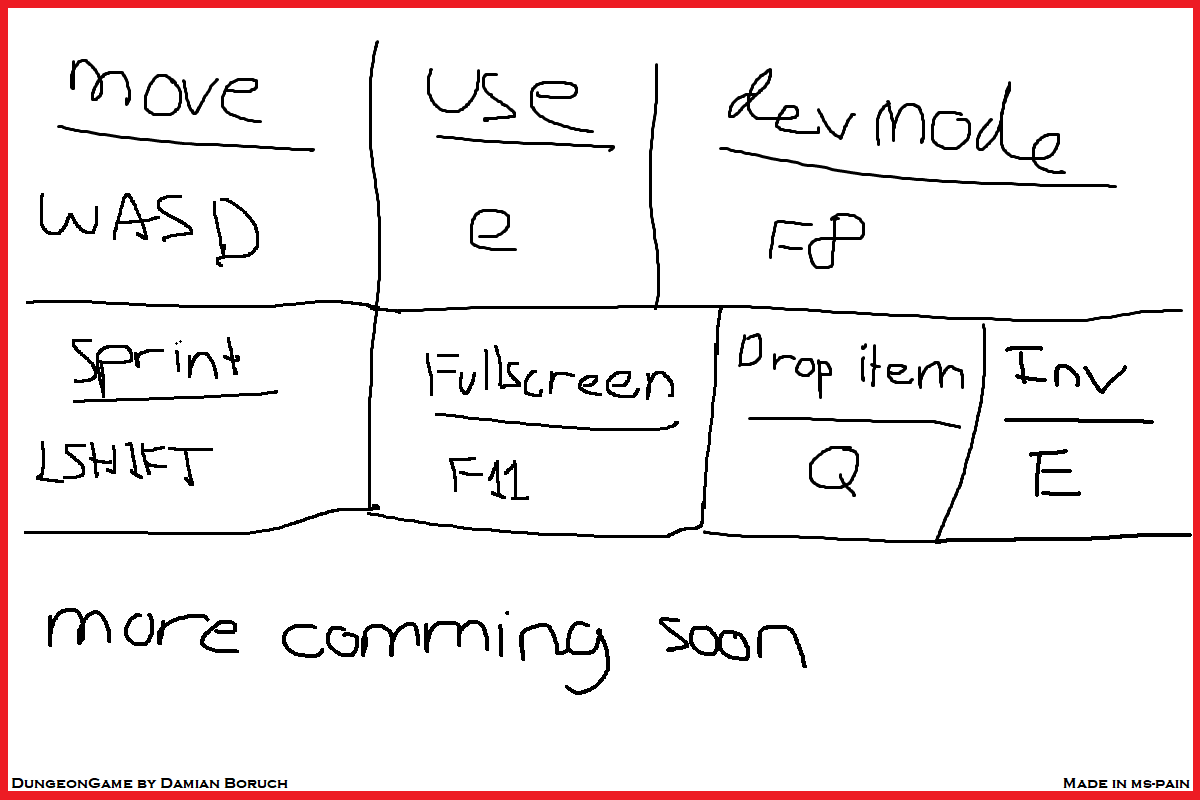 move
use
dev mode
WASD
e
F8
Sprint
Fullscreen
Drop item
Inv
LSHIFT
F11
Q
E
more comming soon
DungeonGame by Damian Boruch
Made in ms-pain